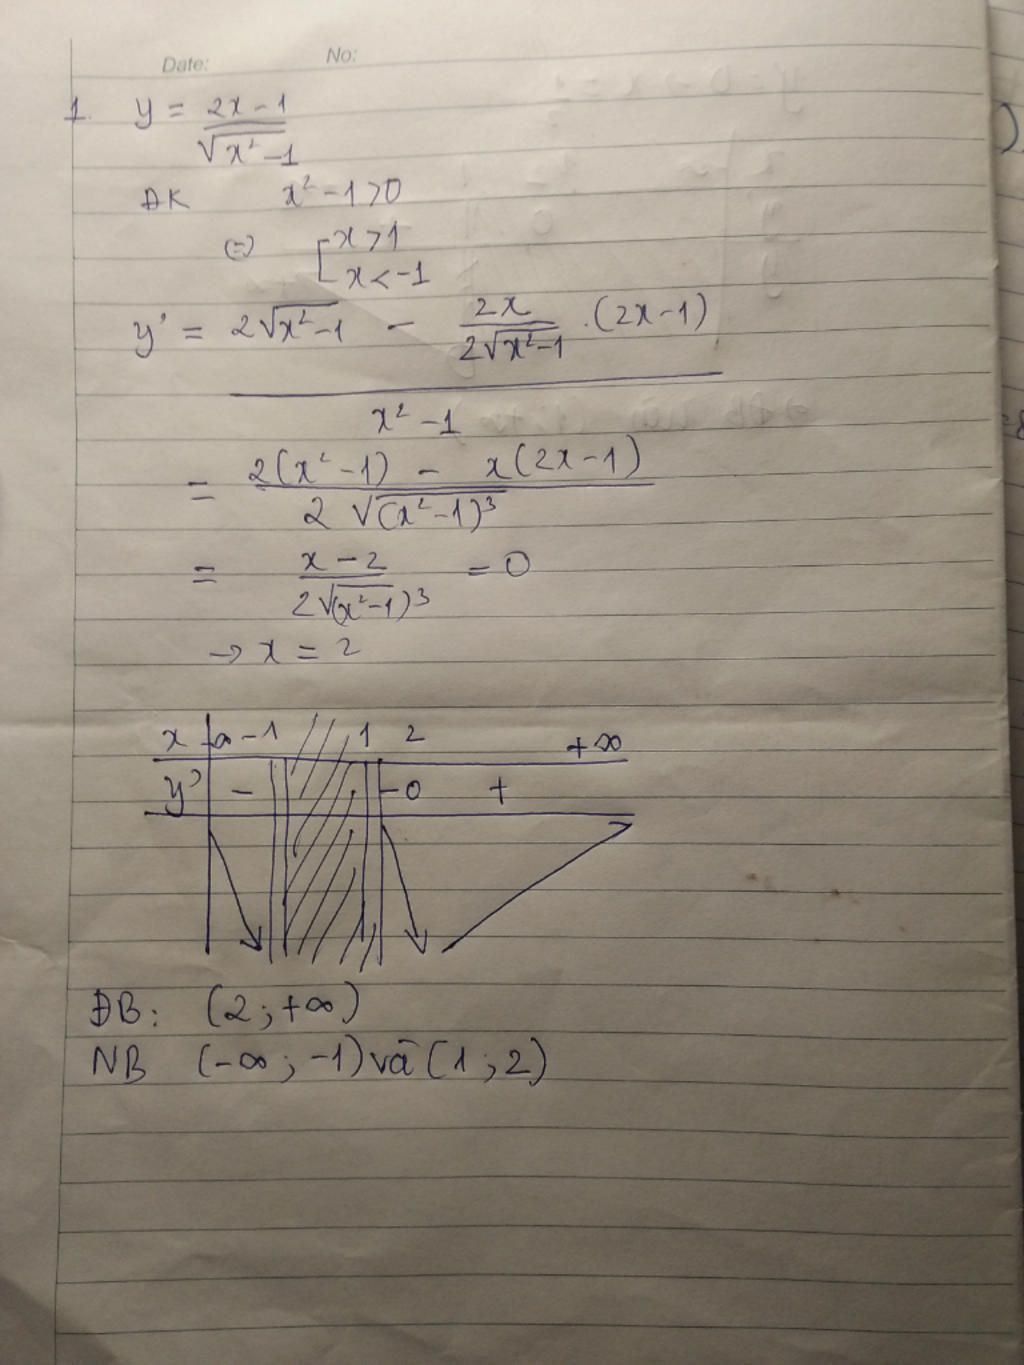 Date: No:
1. y = \frac{2x-1}{\sqrt{x²-1}}
ĐK x² - 1 > 0
⇔ [ x > 1
x < -1
y' = \frac{2\sqrt{x²-1} - \frac{2x}{2\sqrt{x²-1}} .(2x-1)}{x²-1}
= \frac{2(x²-1) - x(2x-1)}{2\sqrt{(x²-1)³}}
= \frac{x-2}{2\sqrt{(x²-1)³}} = 0
→ x = 2
x -∞ -1 1 2 +∞
y' - - 0 +
ĐB: (2; +∞)
NB (-∞; -1) và (1; 2)